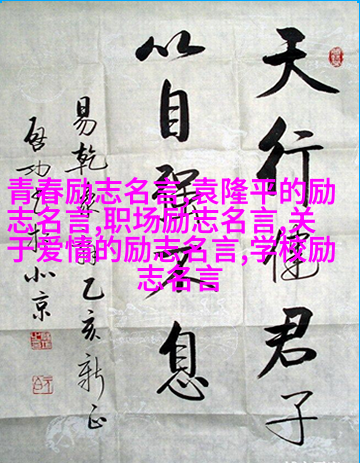 天行健君子
以自強不息
易乾乙亥新正
啟功北京
青春励志名言,袁隆平的励
志名言,职场励志名言,关
于爱情的励志名言,学校励
志名言